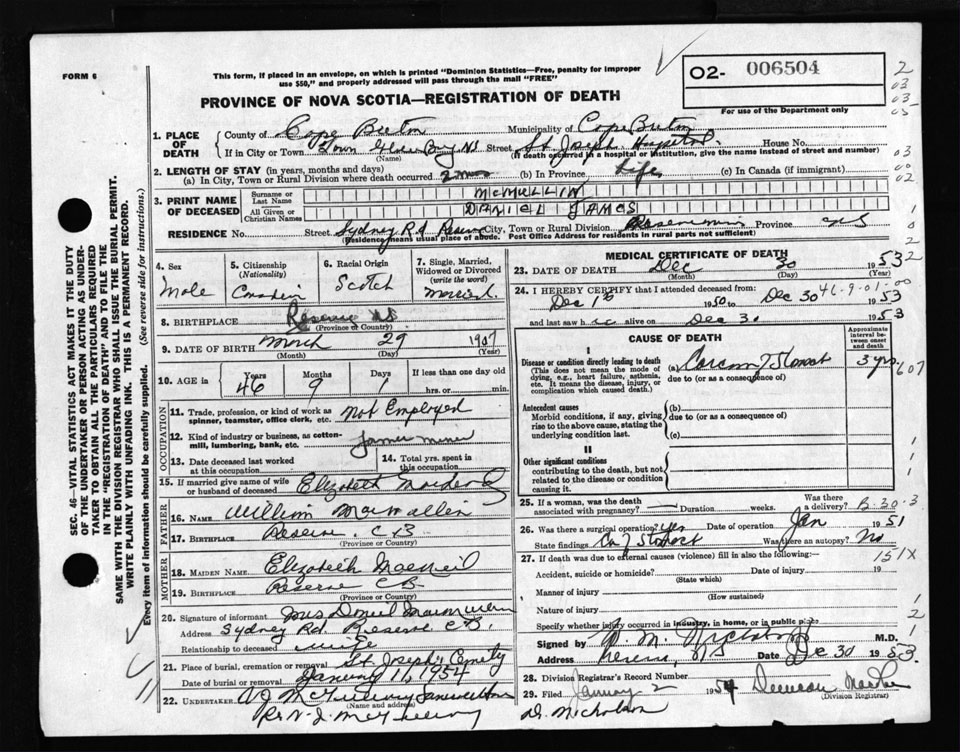 FORM 6
This form, if placed in an envelope, on which is printed "Dominion Statistics—Free, penalty for improper
use $50," and properly addressed will pass through the mail "FREE"
O2- 006504
For use of the Department only
PROVINCE OF NOVA SCOTIA—REGISTRATION OF DEATH
SEC. 46—VITAL STATISTICS ACT MAKES IT THE DUTY
OF THE UNDERTAKER OR PERSON ACTING AS UNDER-
TAKER TO OBTAIN ALL THE PARTICULARS REQUIRED
IN THE "REGISTRATION OF DEATH" AND TO FILE
SAME WITH THE DIVISION REGISTRAR WHO SHALL ISSUE THE BURIAL PERMIT.
WRITE PLAINLY WITH UNFADING INK. THIS IS A PERMANENT RECORD.
Every item of information should be carefully supplied. (See reverse side for instructions.)
1. PLACE OF DEATH County of Cape Breton Municipality of Cape Breton
If in City or Town Town Glace Bay NS Street St. Joseph Hospital House No.
(Name) (If death occurred in a hospital or institution, give the name instead of street and number)
2. LENGTH OF STAY (in years, months and days)
(a) In City, Town or Rural Division where death occurred 2 mos (b) In Province Life (c) In Canada (if immigrant)
3. PRINT NAME OF DECEASED Surname or Last Name McMULLIN
All Given or Christian Names DANIEL JAMES
RESIDENCE No. Street Sydney Rd Reserve City, Town or Rural Division Province NS
(Residence means usual place of abode. Post Office Address for residents in rural parts not sufficient)
4. Sex Male
5. Citizenship (Nationality) Canadian
6. Racial Origin Scotch
7. Single, Married, Widowed or Divorced (write the word) Married
8. BIRTHPLACE Reserve NS
(Province or Country)
9. DATE OF BIRTH March 29 1907
(Month) (Day) (Year)
10. AGE in Years 46 Months 9 Days 1 If less than one day old
hrs. or min.
OCCUPATION
11. Trade, profession, or kind of work as spinner, teamster, office clerk, etc. Not Employed
12. Kind of industry or business, as cotton-mill, lumbering, bank, etc. Miner
13. Date deceased last worked at this occupation
14. Total yrs. spent in this occupation
15. If married give name of wife or husband of deceased Elizabeth
FATHER
16. NAME William MacMullin
17. BIRTHPLACE Reserve C B
(Province or Country)
MOTHER
18. MAIDEN NAME Elizabeth MacNeil
19. BIRTHPLACE Reserve CB
(Province or Country)
20. Signature of informant Mrs Daniel MacMullin
Address Sydney Rd. Reserve C B,
Relationship to deceased wife
21. Place of burial, cremation or removal St Joseph's Cemetery
Date of burial or removal January 1, 1954
22. UNDERTAKER
(Name and address)
MEDICAL CERTIFICATE OF DEATH
23. DATE OF DEATH Dec 30 1953
(Month) (Day) (Year)
24. I HEREBY CERTIFY that I attended deceased from:
Dec 1st 1950 to Dec 30 1953
and last saw h alive on Dec 30 1953
46-9-01-00
CAUSE OF DEATH
Approximate interval between onset and death
I
Disease or condition directly leading to death (This does not mean the mode of dying, e.g., heart failure, asthenia, etc. It means the disease, injury, or complication which caused death.)
(a) Carcin of Stomach 3 yrs
due to (or as a consequence of)
Antecedent causes
Morbid conditions, if any, giving rise to the above cause, stating the underlying condition last.
(b)
due to (or as a consequence of)
(c)
II
Other significant conditions
contributing to the death, but not related to the disease or condition causing it.
25. If a woman, was the death associated with pregnancy? Duration weeks. Was there a delivery?
26. Was there surgical operation? Yes Date of operation Jan 1951
State findings Ca of Stomach Was there an autopsy? No
27. If death was due to external causes (violence) fill in also the following:—
Accident, suicide or homicide? Date of injury 19
(State which)
Manner of injury
(How sustained)
Nature of injury
Specify whether injury occurred in industry, in home, or in public place
Signed by M.D.
Address Reserve, NS Date Dec 30 1953.
28. Division Registrar's Record Number
29. Filed January 2 1954 Duncan
(Division Registrar)
D. Nicholson